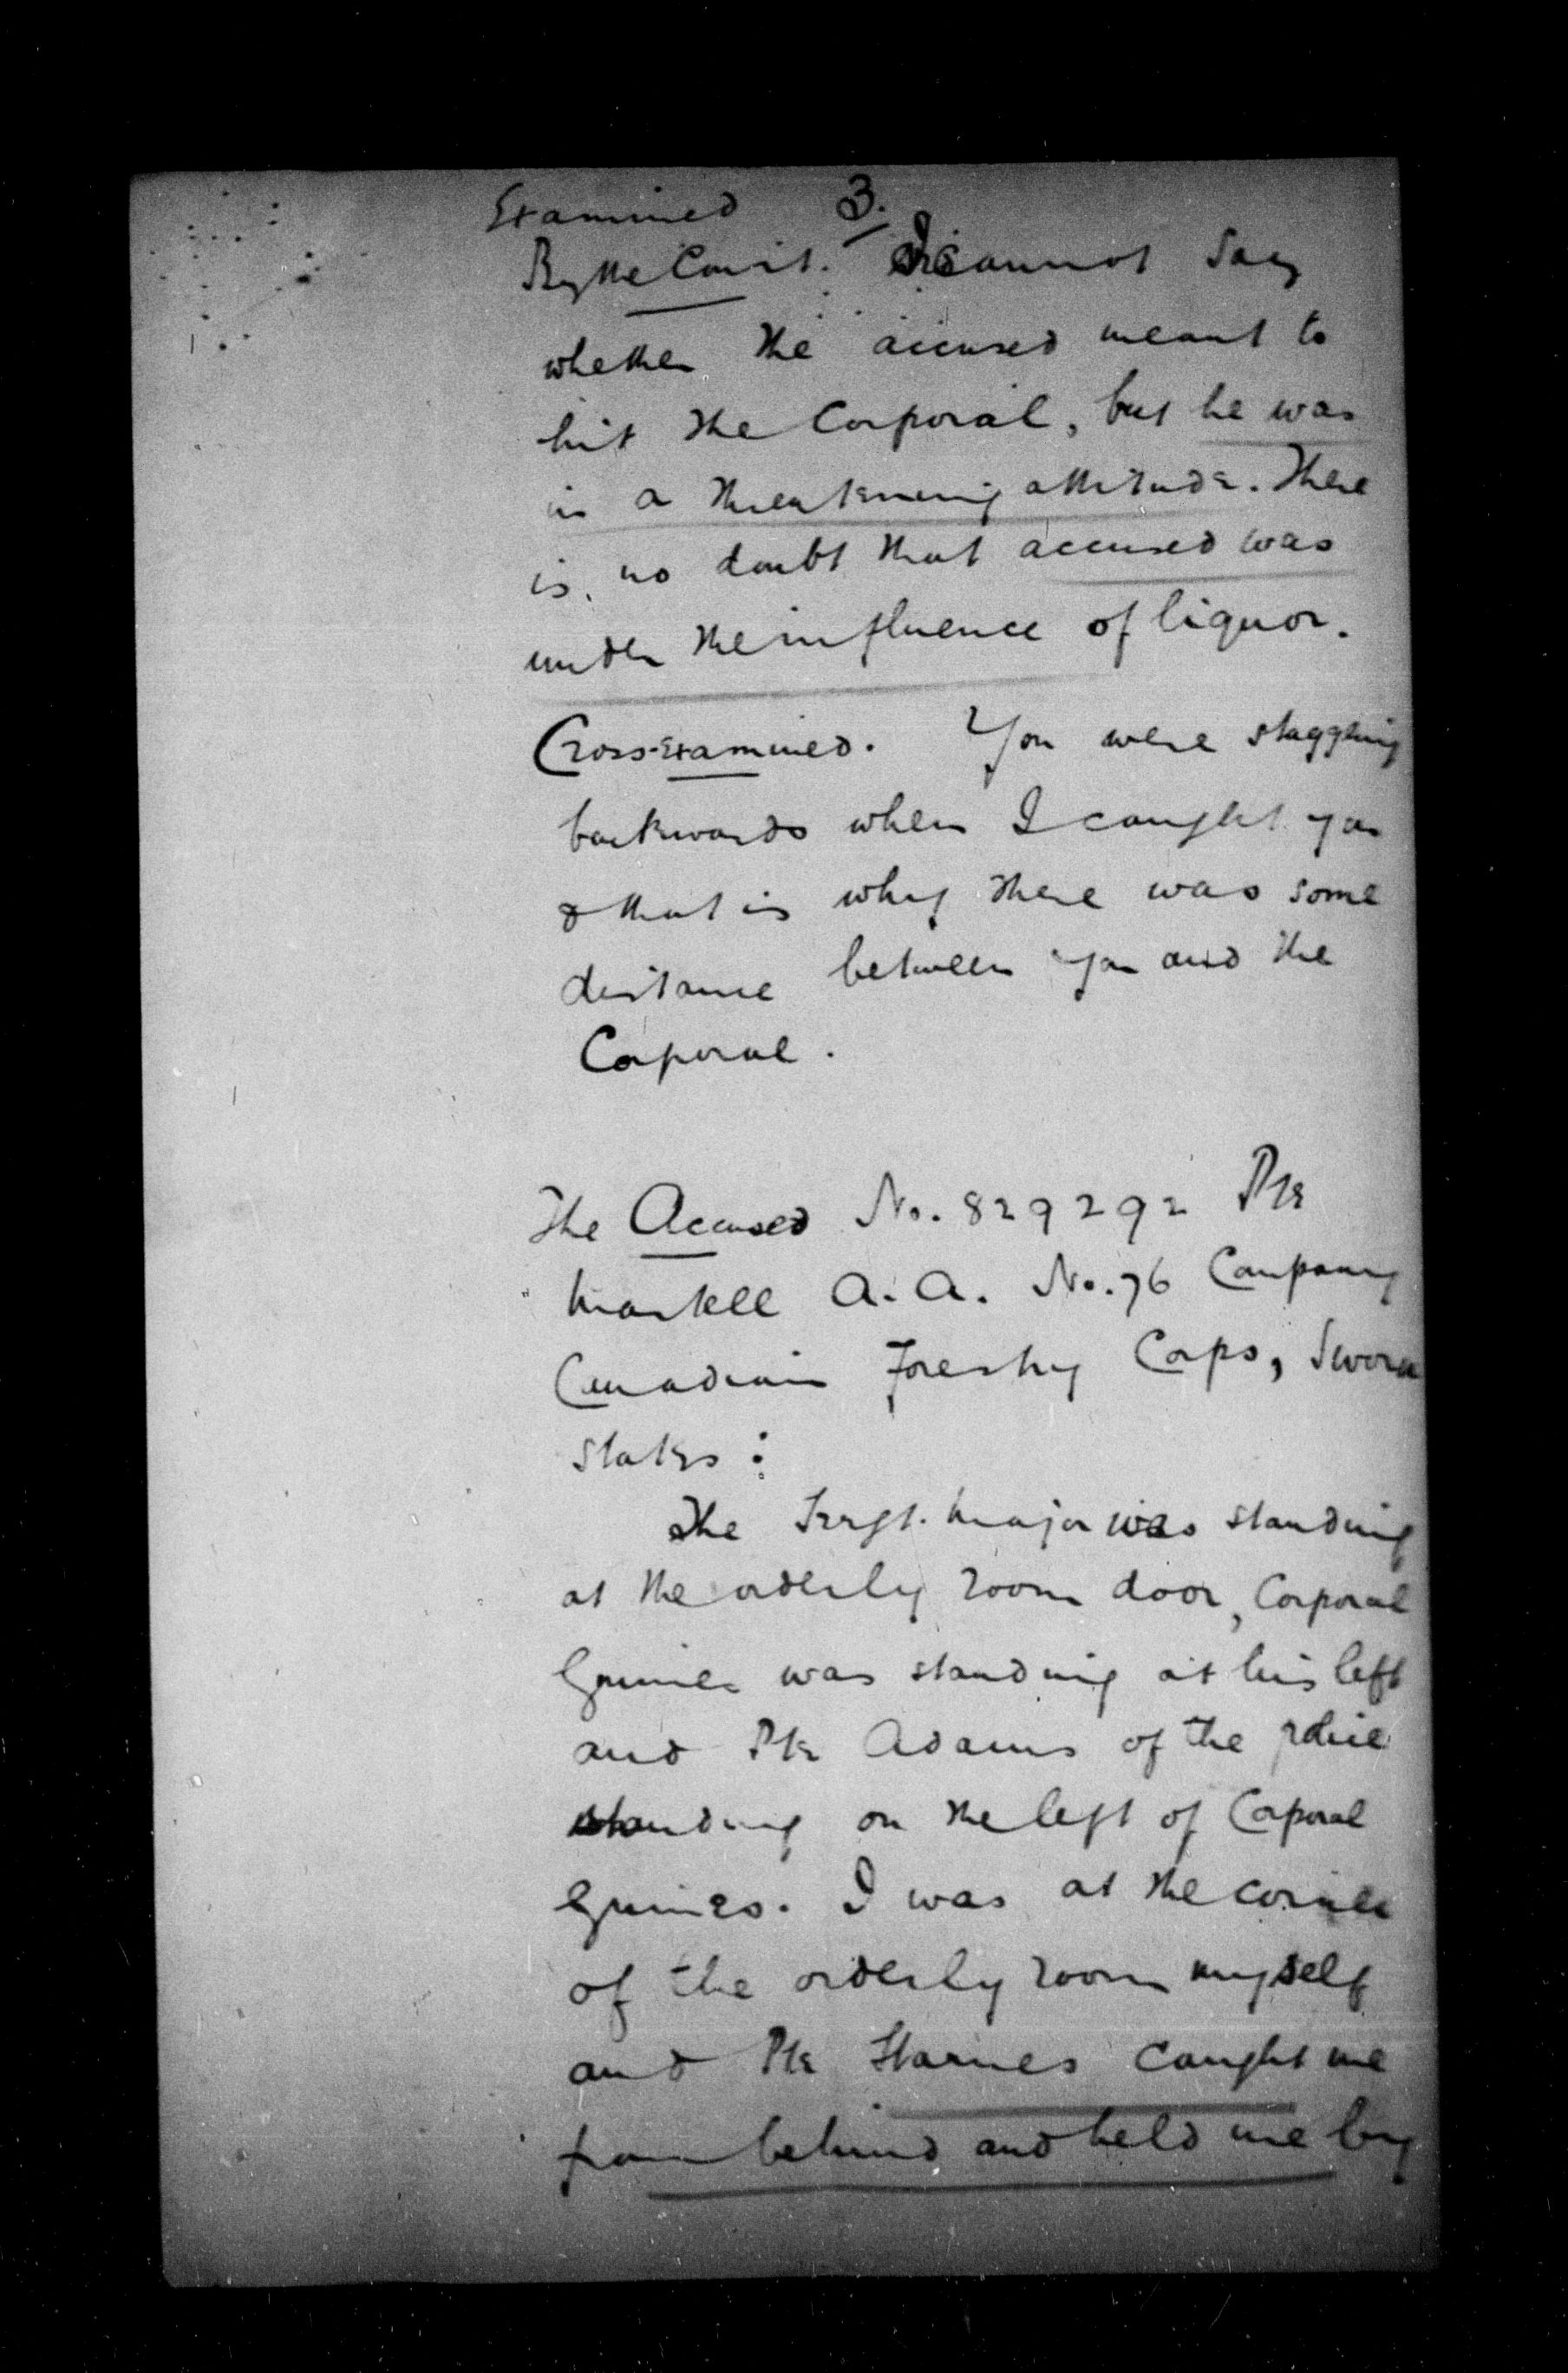 3.
Examined
By the Court. I cannot say
whether the accused meant to
hit the Corporal, but he was
in a threatening attitude. There
is no doubt that accused was
under the influence of liquor.
Cross-examined. You were staggering
backwards when I caught you
& that is why there was some
distance between you and the
Corporal.
The Accused No. 829292 Pte
Markell A. A. No. 76 Company
Canadian Forestry Corps, Sworn
states:
The Sergt. Major was standing
at the orderly room door, Corporal
was standing at his left
and Pte Adams of the police
standing on the left of Corporal
I was at the corner
of the orderly room myself
and Pte Starnes caught me
from behind and held me by